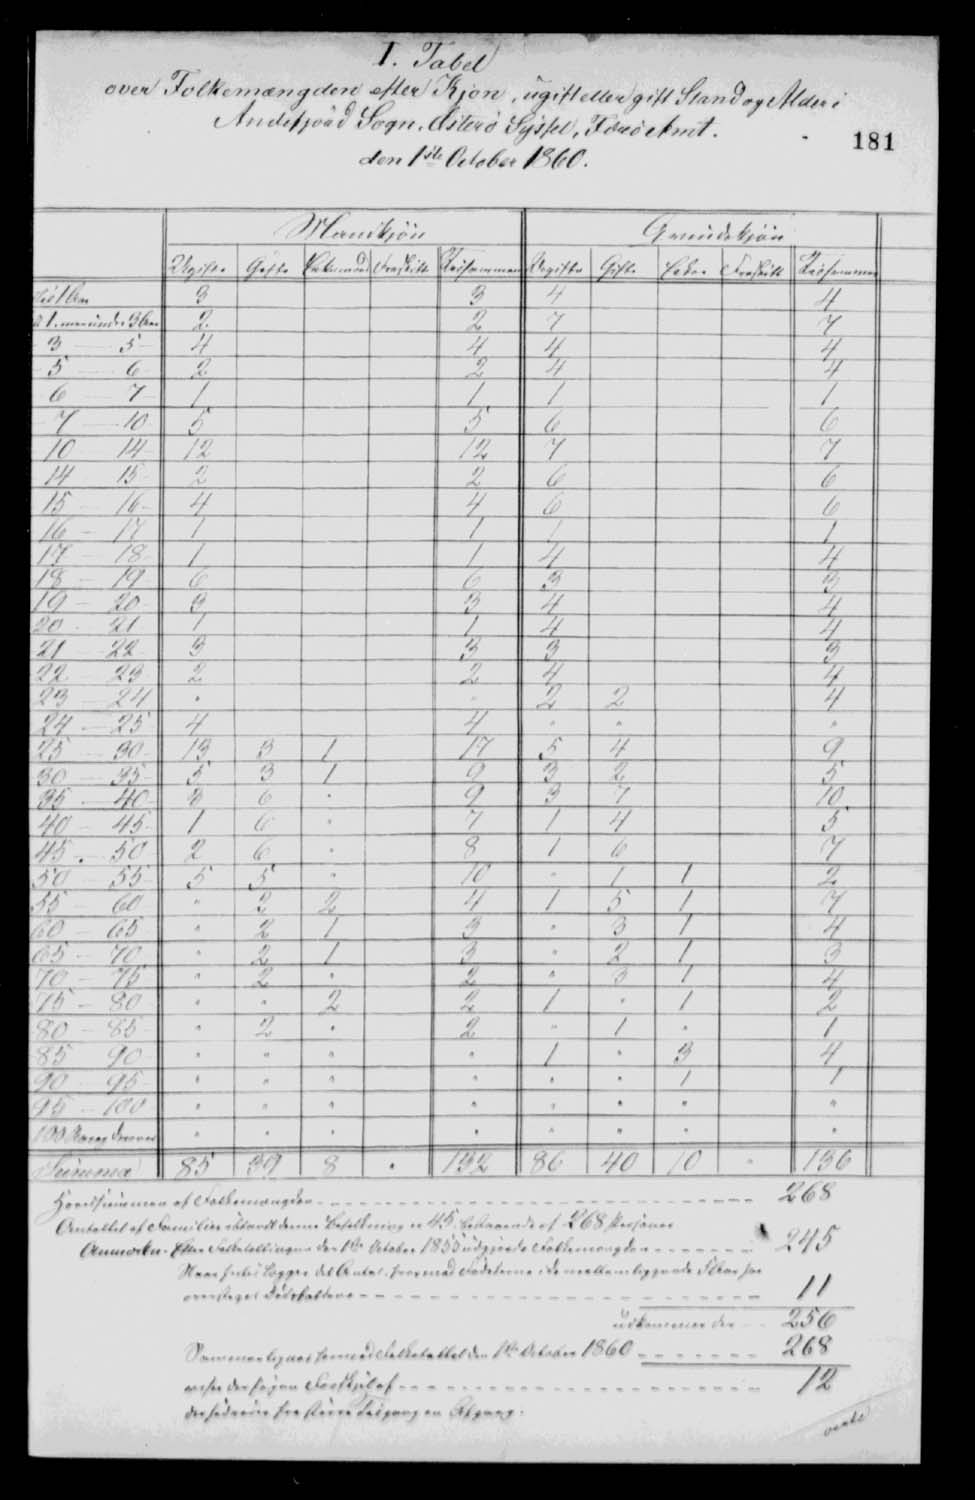 I. Tabel
over Folkemængden efter Kjøn, ugift eller gift Stand og Alder i
Andefjørd Sogn, Østerø Syssel, Færø Amt.
den 1ste October 1860.
181
Mandkjön Qvindekjön
Ugifte Gifte Enkemænd Fraskilte Tilsammen Ugifte Gifte Enker Fraskilte Tilsammen
3 3 4 4
2 2 7 7
3 — 5 4 4 4 4
5 — 6 2 2 4 4
6 — 7 1 1 1 1
7 — 10 5 5 6 6
10 — 14 12 12 7 7
14 — 15 2 2 6 6
15 — 16 4 4 6 6
16 — 17 1 1 1 1
17 — 18 1 1 4 4
18 — 19 6 6 3 3
19 — 20 3 3 4 4
20 - 21 1 1 4 4
21 — 22 3 3 3 3
22 — 23 2 2 4 4
23 — 24 " " 2 2 4
24 — 25 4 4 " " "
25 — 30 13 3 1 17 5 4 9
30 — 35 5 3 1 9 3 2 5
35 — 40 3 6 " 9 3 7 10
40 — 45 1 6 " 7 1 4 5
45 - 50 2 6 " 8 1 6 7
50 — 55 5 5 " 10 " 1 1 2
55 — 60 " 2 2 4 1 5 1 7
60 — 65 " 2 1 3 " 3 1 4
65 — 70 " 2 1 3 " 2 1 3
70 — 75 " 2 " 2 " 3 1 4
75 — 80 " " 2 2 1 " 1 2
80 — 85 " 2 " 2 " 1 " 1
85 90 " " " " 1 " 3 4
90 — 95 " " " " " " 1 1
95 — 100 " " " " " " " "
100 Aar og derover " " " " " " " "
Summa 85 39 8 " 132 86 40 10 " 136
Hovedsummen af Folkemængden 268
Antallet af Familier iblandt denne Befolkning er 45, bestaaende af 268 Personer
Anmærkn. Efter Folketællingen den 1ste October 1855 udgjorde Folkemængden 245
Naar hertil lægges det Antal, hvormed Fødslerne i de mellemliggende 5 Aar har
oversteget Dødsfaldene 11
udkommer der 256
Sammenlignes hermed Folketallet den 1ste October 1860 268
viser der sig en Forskjel af 12